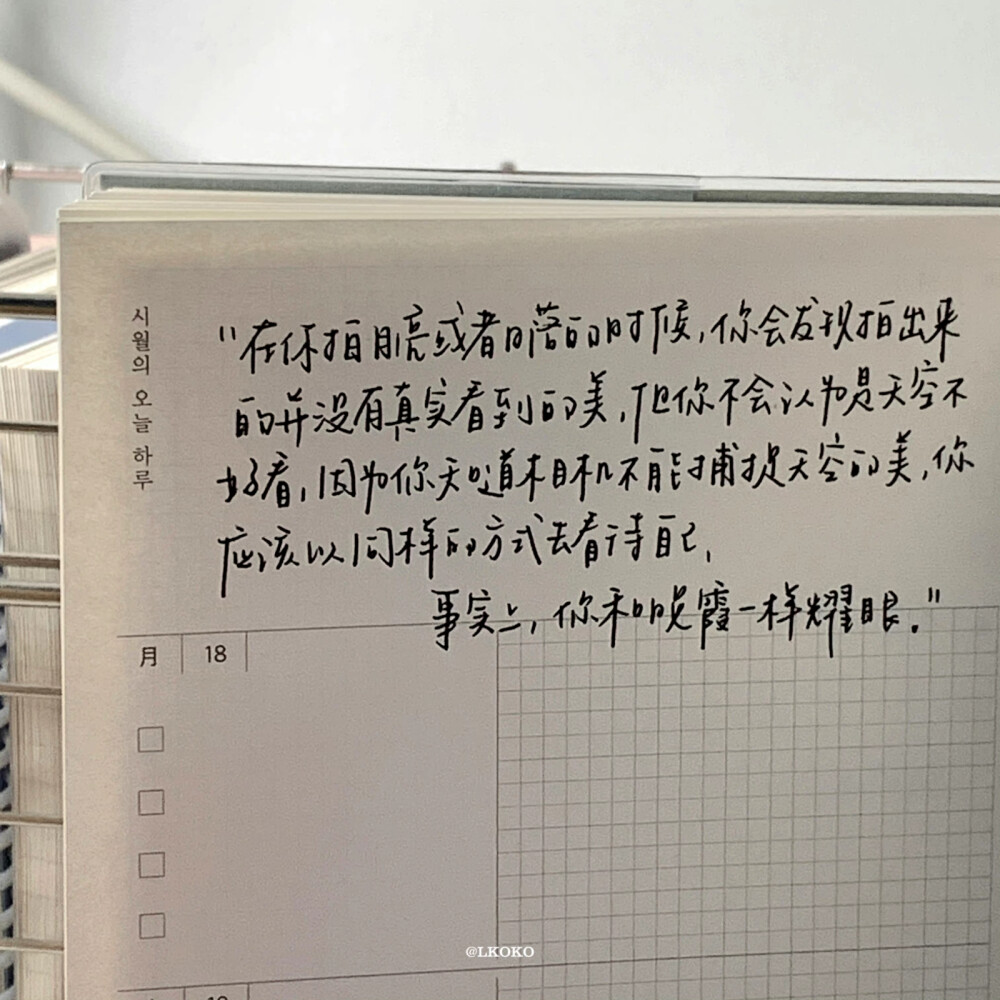 시월의 오늘 하루
"在你拍月亮或者日落的时候,你会发现拍出来
的并没有真实看到的美,但你不会认为是天空不
好看,因为你知道相机不能捕捉天空的美,你
应该以同样的方式去看待自己,
事实上,你和晚霞一样耀眼."
月 18
@LKOKO